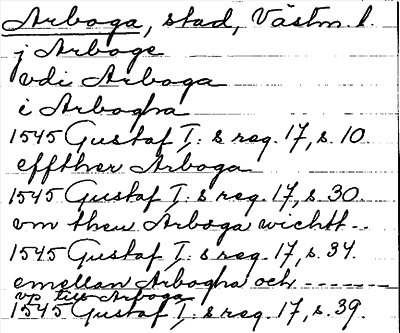 Arboga, stad, Västm. l.
j Arboge
vdi Arboga
i Arbogha
1545 Gustaf I:s reg. 17, s. 10.
effther Arboga
1545 Gustaf I:s reg. 17, s. 30.
vm then Arboga wichtt --
1545 Gustaf I:s reg. 17, s. 34.
emellan Arbogha och -------
vp till Arboga
1545 Gustaf I:s reg. 17, s. 39.